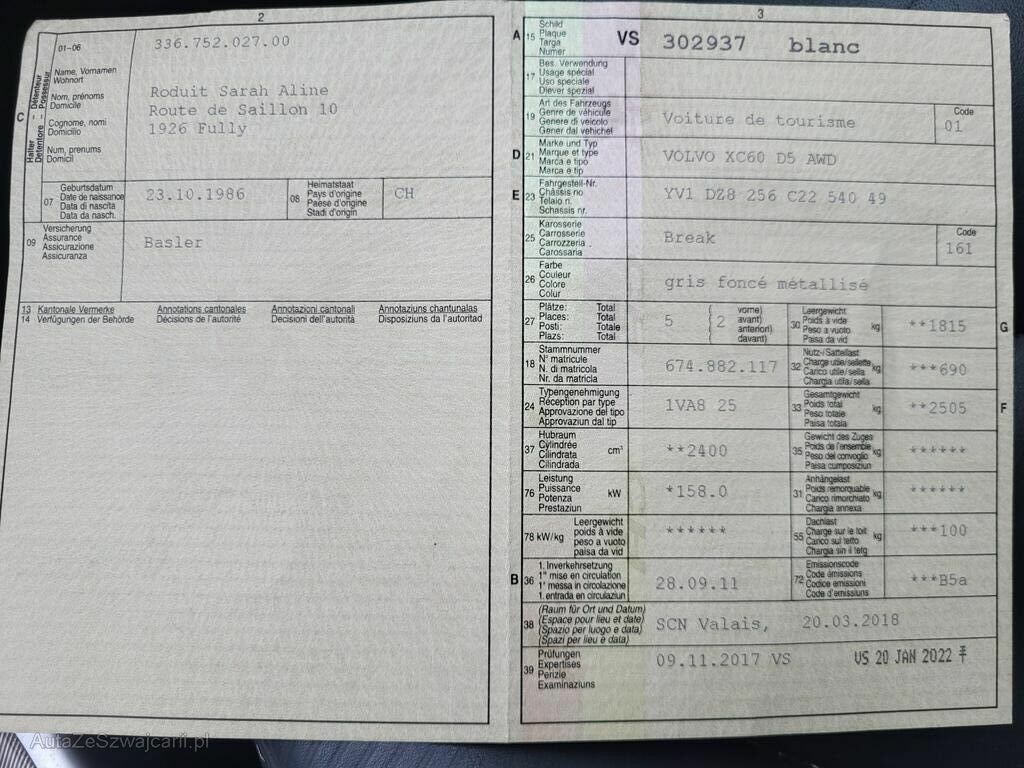 2
01-06
336.752.027.00
C
Halter – Détenteur
Detentore – Possessur
Name, Vornamen
Wohnort
Nom, prénoms
Domicile
Cognome, nomi
Domicilio
Num, prenums
Domicil
Roduit Sarah Aline
Route de Saillon 10
1926 Fully
07
Geburtsdatum
Date de naissance
Data di nascita
Data da nasch.
23.10.1986
08
Heimatstaat
Pays d'origine
Paese d'origine
Stadi d'origin
CH
09
Versicherung
Assurance
Assicurazione
Assicuranza
Basler
13 Kantonale Vermerke Annotations cantonales Annotazioni cantonali Annotaziuns chantunalas
14 Verfügungen der Behörde Décisions de l'autorité Decisioni dell'autorità Disposiziuns da l'autoritad
3
A 15
Schild
Plaque
Targa
Numer
VS 302937 blanc
17
Bes. Verwendung
Usage spécial
Uso speciale
Diever spezial
19
Art des Fahrzeugs
Genre de véhicule
Genere di veicolo
Gener dal vehichel
Voiture de tourisme
Code
01
D 21
Marke und Typ
Marque et type
Marca e tipo
Marca e tip
VOLVO XC60 D5 AWD
E 23
Fahrgestell-Nr.
Châssis no
Telaio n.
Schassis nr.
YV1 DZ8 256 C22 540 49
25
Karosserie
Carrosserie
Carrozzeria
Carossaria
Break
Code
161
26
Farbe
Couleur
Colore
Colur
gris foncé métallisé
27
Plätze: Total
Places: Total
Posti: Totale
Plazs: Total
5
2
vorne)
avant)
anteriori)
davant)
30
Leergewicht
Poids à vide
Peso a vuoto
Paisa da vid
kg
**1815
G
18
Stammnummer
N° matricule
N. di matricola
Nr. da matricla
674.882.117
32
Nutz-/Sattellast
Charge utile/sellette
Carico utile/sella
Chargia utila/sella
kg
***690
24
Typengenehmigung
Réception par type
Approvazione del tipo
Approvaziun dal tip
1VA8 25
33
Gesamtgewicht
Poids total
Peso totale
Paisa totala
kg
**2505
F
37
Hubraum
Cylindrée
Cilindrata
Cilindrada
cm³
**2400
35
Gewicht des Zuges
Poids de l'ensemble
Peso del convoglio
Paisa cumposiziun
kg
******
76
Leistung
Puissance
Potenza
Prestaziun
kW
*158.0
31
Anhängelast
Poids remorquable
Carico rimorchiato
Chargia annexa
kg
******
78 kW/kg
Leergewicht
poids à vide
peso a vuoto
paisa da vid
******
55
Dachlast
Charge sur le toit
Carico sul tetto
Chargia sin il tetg
kg
***100
B 36
1. Inverkehrsetzung
1re mise en circulation
1a messa in circolazione
1. entrada en circulaziun
28.09.11
72
Emissionscode
Code émissions
Codice emissioni
Code d'emissiuns
***B5a
38
(Raum für Ort und Datum)
(Espace pour lieu et date)
(Spazio per luogo e data)
(Spazi per lieu e data)
SCN Valais, 20.03.2018
39
Prüfungen
Expertises
Perizie
Examinaziuns
09.11.2017 VS
VS 20 JAN 2022
AutaZeSzwajcarii.pl